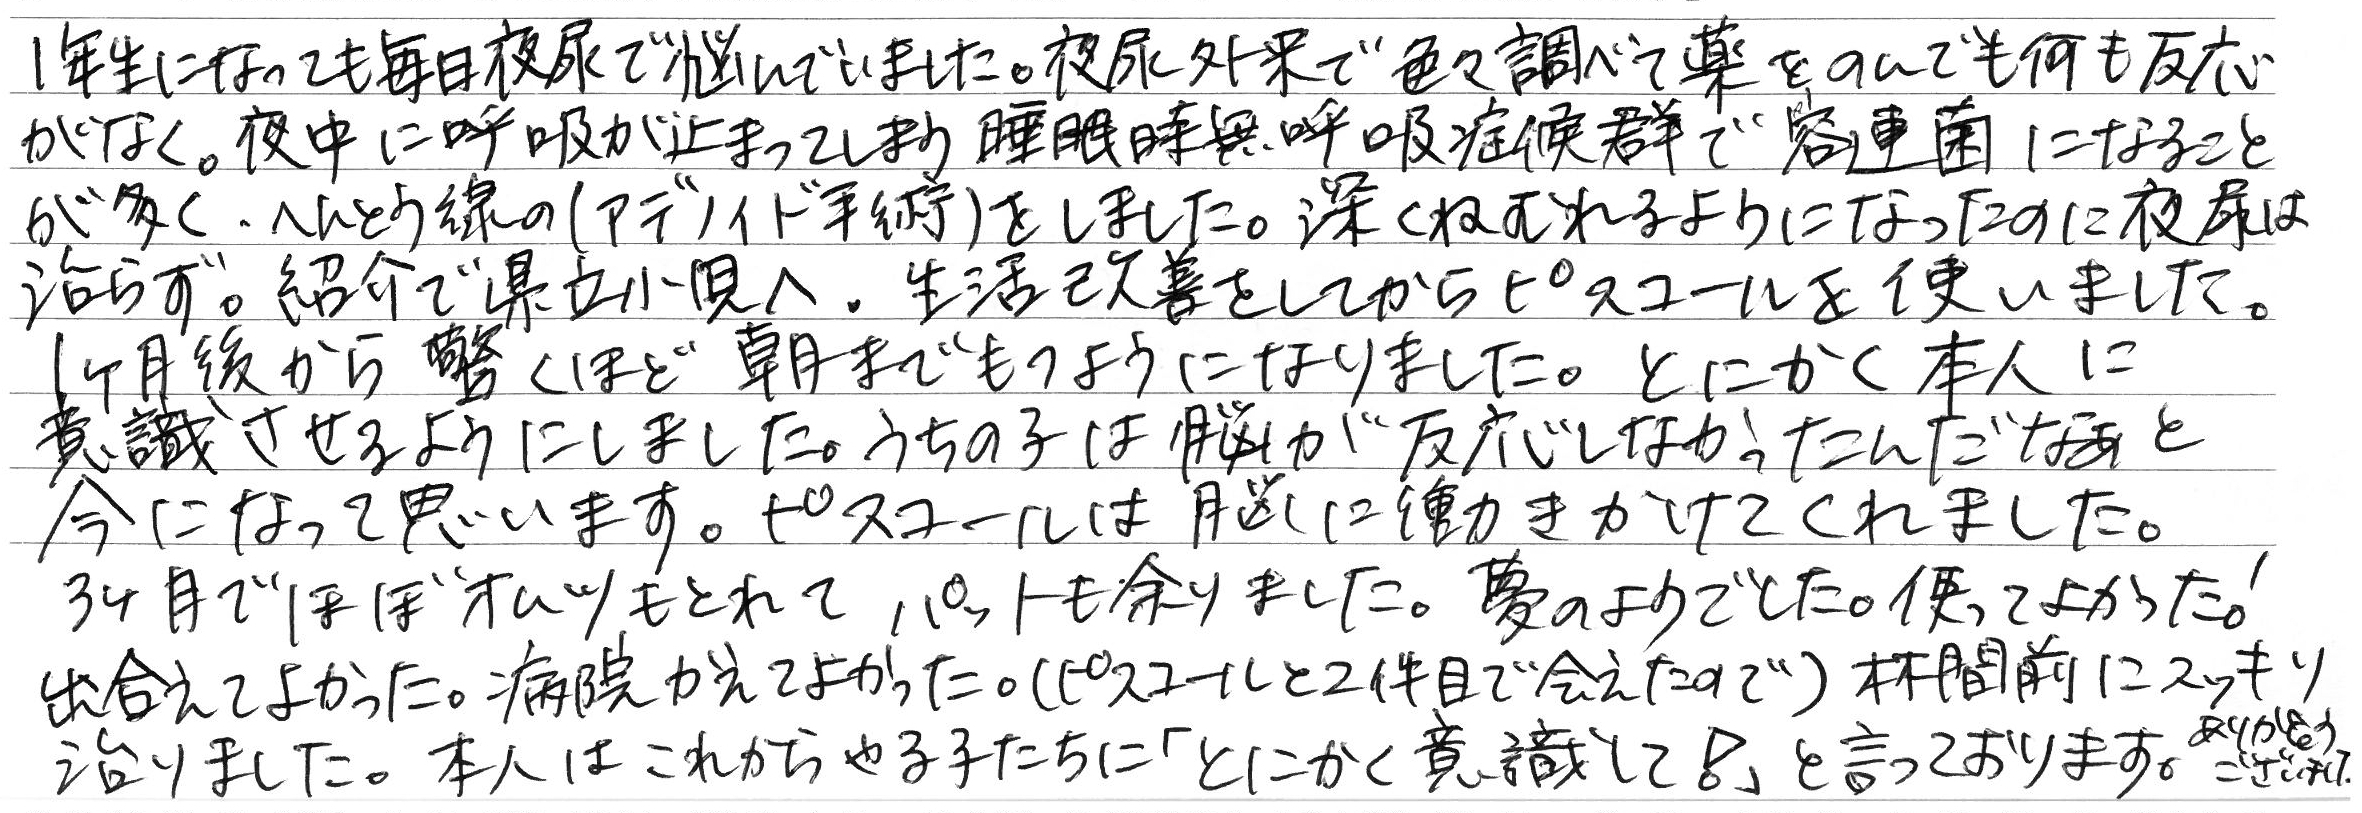 1年生になっても毎日夜尿で悩んでいました。夜尿外来で色々調べて薬をのんでも何も反応
がなく。夜中に呼吸が止まってしまう睡眠時無呼吸症候群で溶連菌になること
が多く、へんとう線の(アデノイド手術)をしました。深くねむれるようになったのに夜尿は
治らず。紹介で県立小児へ。生活改善をしてからピスコールを使いました。
1ヶ月後から驚くほど朝までもつようになりました。とにかく本人に
意識させるようにしました。うちの子は脳が反応しなかったんだなあと
今になって思います。ピスコールは脳に働きかけてくれました。
3ヶ月でほぼオムツもとれてパットも余りました。夢のようでした。使ってよかった!
出合えてよかった。病院かえてよかった。(ピスコールと2件目で会えたので)林間前にスッキリ
治りました。本人はこれからやる子たちに「とにかく意識して!」と言っております。ありがとう
ございました。